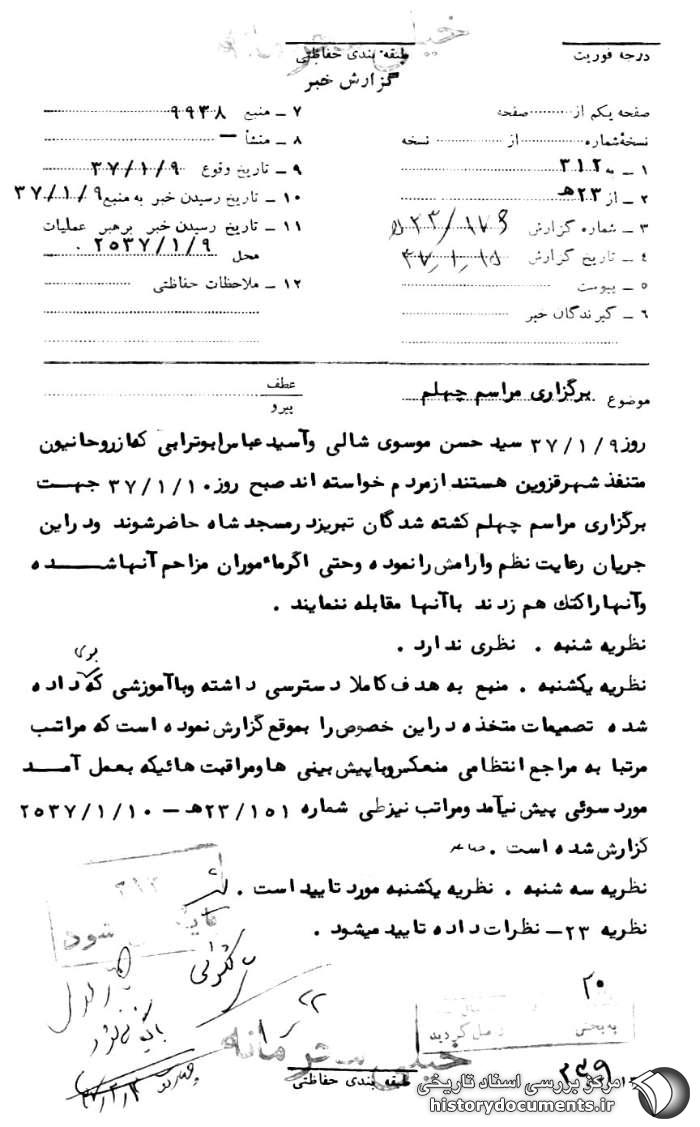 خیلی محرمانه
درجه فوریت
طبقه بندی حفاظتی
گزارش خبر
صفحه یکم از ............ صفحه
نسخهٔ شماره ............ از ............ نسخه
۱ ــ به ۳۱۲
۲ ــ از ۲۳هـ
۳ ــ شماره گزارش
۴ ــ تاریخ گزارش
۵ ــ پیوست
۶ ــ گیرندگان خبر
۷ ــ منبع ۹۹۳۸
۸ ــ منشأ —
۹ ــ تاریخ وقوع ۳۷/۱/۹
۱۰ ــ تاریخ رسیدن خبر به منبع ۳۷/۱/۹
۱۱ ــ تاریخ رسیدن خبر برهبر عملیات
محل ۲۵۳۷/۱/۹ .
۱۲ ــ ملاحظات حفاظتی
موضوع برگزاری مراسم چهلم
عطف
پیرو
روز ۳۷/۱/۹ سید حسن موسوی شالی وآسیدعباس ابوترابی که ازروحانیون
متنفذ شهرقزوین هستند ازمردم خواسته اند صبح روز ۳۷/۱/۱۰ جهت
برگزاری مراسم چهلم کشته شدگان تبریزد رمسجد شاه حاضرشوند ود راین
جریان رعایت نظم وارامش رانموده وحتی اگرماٴموران مزاحم آنهاشده
وآنهاراکتک هم زدند باآنها مقابله ننمایند .
نظریه شنبه . نظری ندارد .
نظریه یکشنبه . منبع به هدف کاملا دسترسی داشته وباآموزشی که بوی داده
شده تصمیمات متخذه دراین خصوص را بموقع گزارش نموده است که مراتب
مرتبا به مراجع انتظامی منعکس وباپیش بینی هاومراقبت هائیکه بعمل آمد
مورد سوئی پیش نیآمد ومراتب نیزطی شماره ۲۳/۱۵۱هـ — ۲۵۳۷/۱/۱۰
گزارش شده است .
نظریه سه شنبه . نظریه یکشنبه مورد تایید است .
نظریه ۲۳— نظرات داده تایید میشود .
۳۱۲
شود
بایگانی شود
۲۰
خیلی محرمانه
طبقه بندی حفاظتی
مرکز بررسی اسناد تاریخی
historydocuments.ir